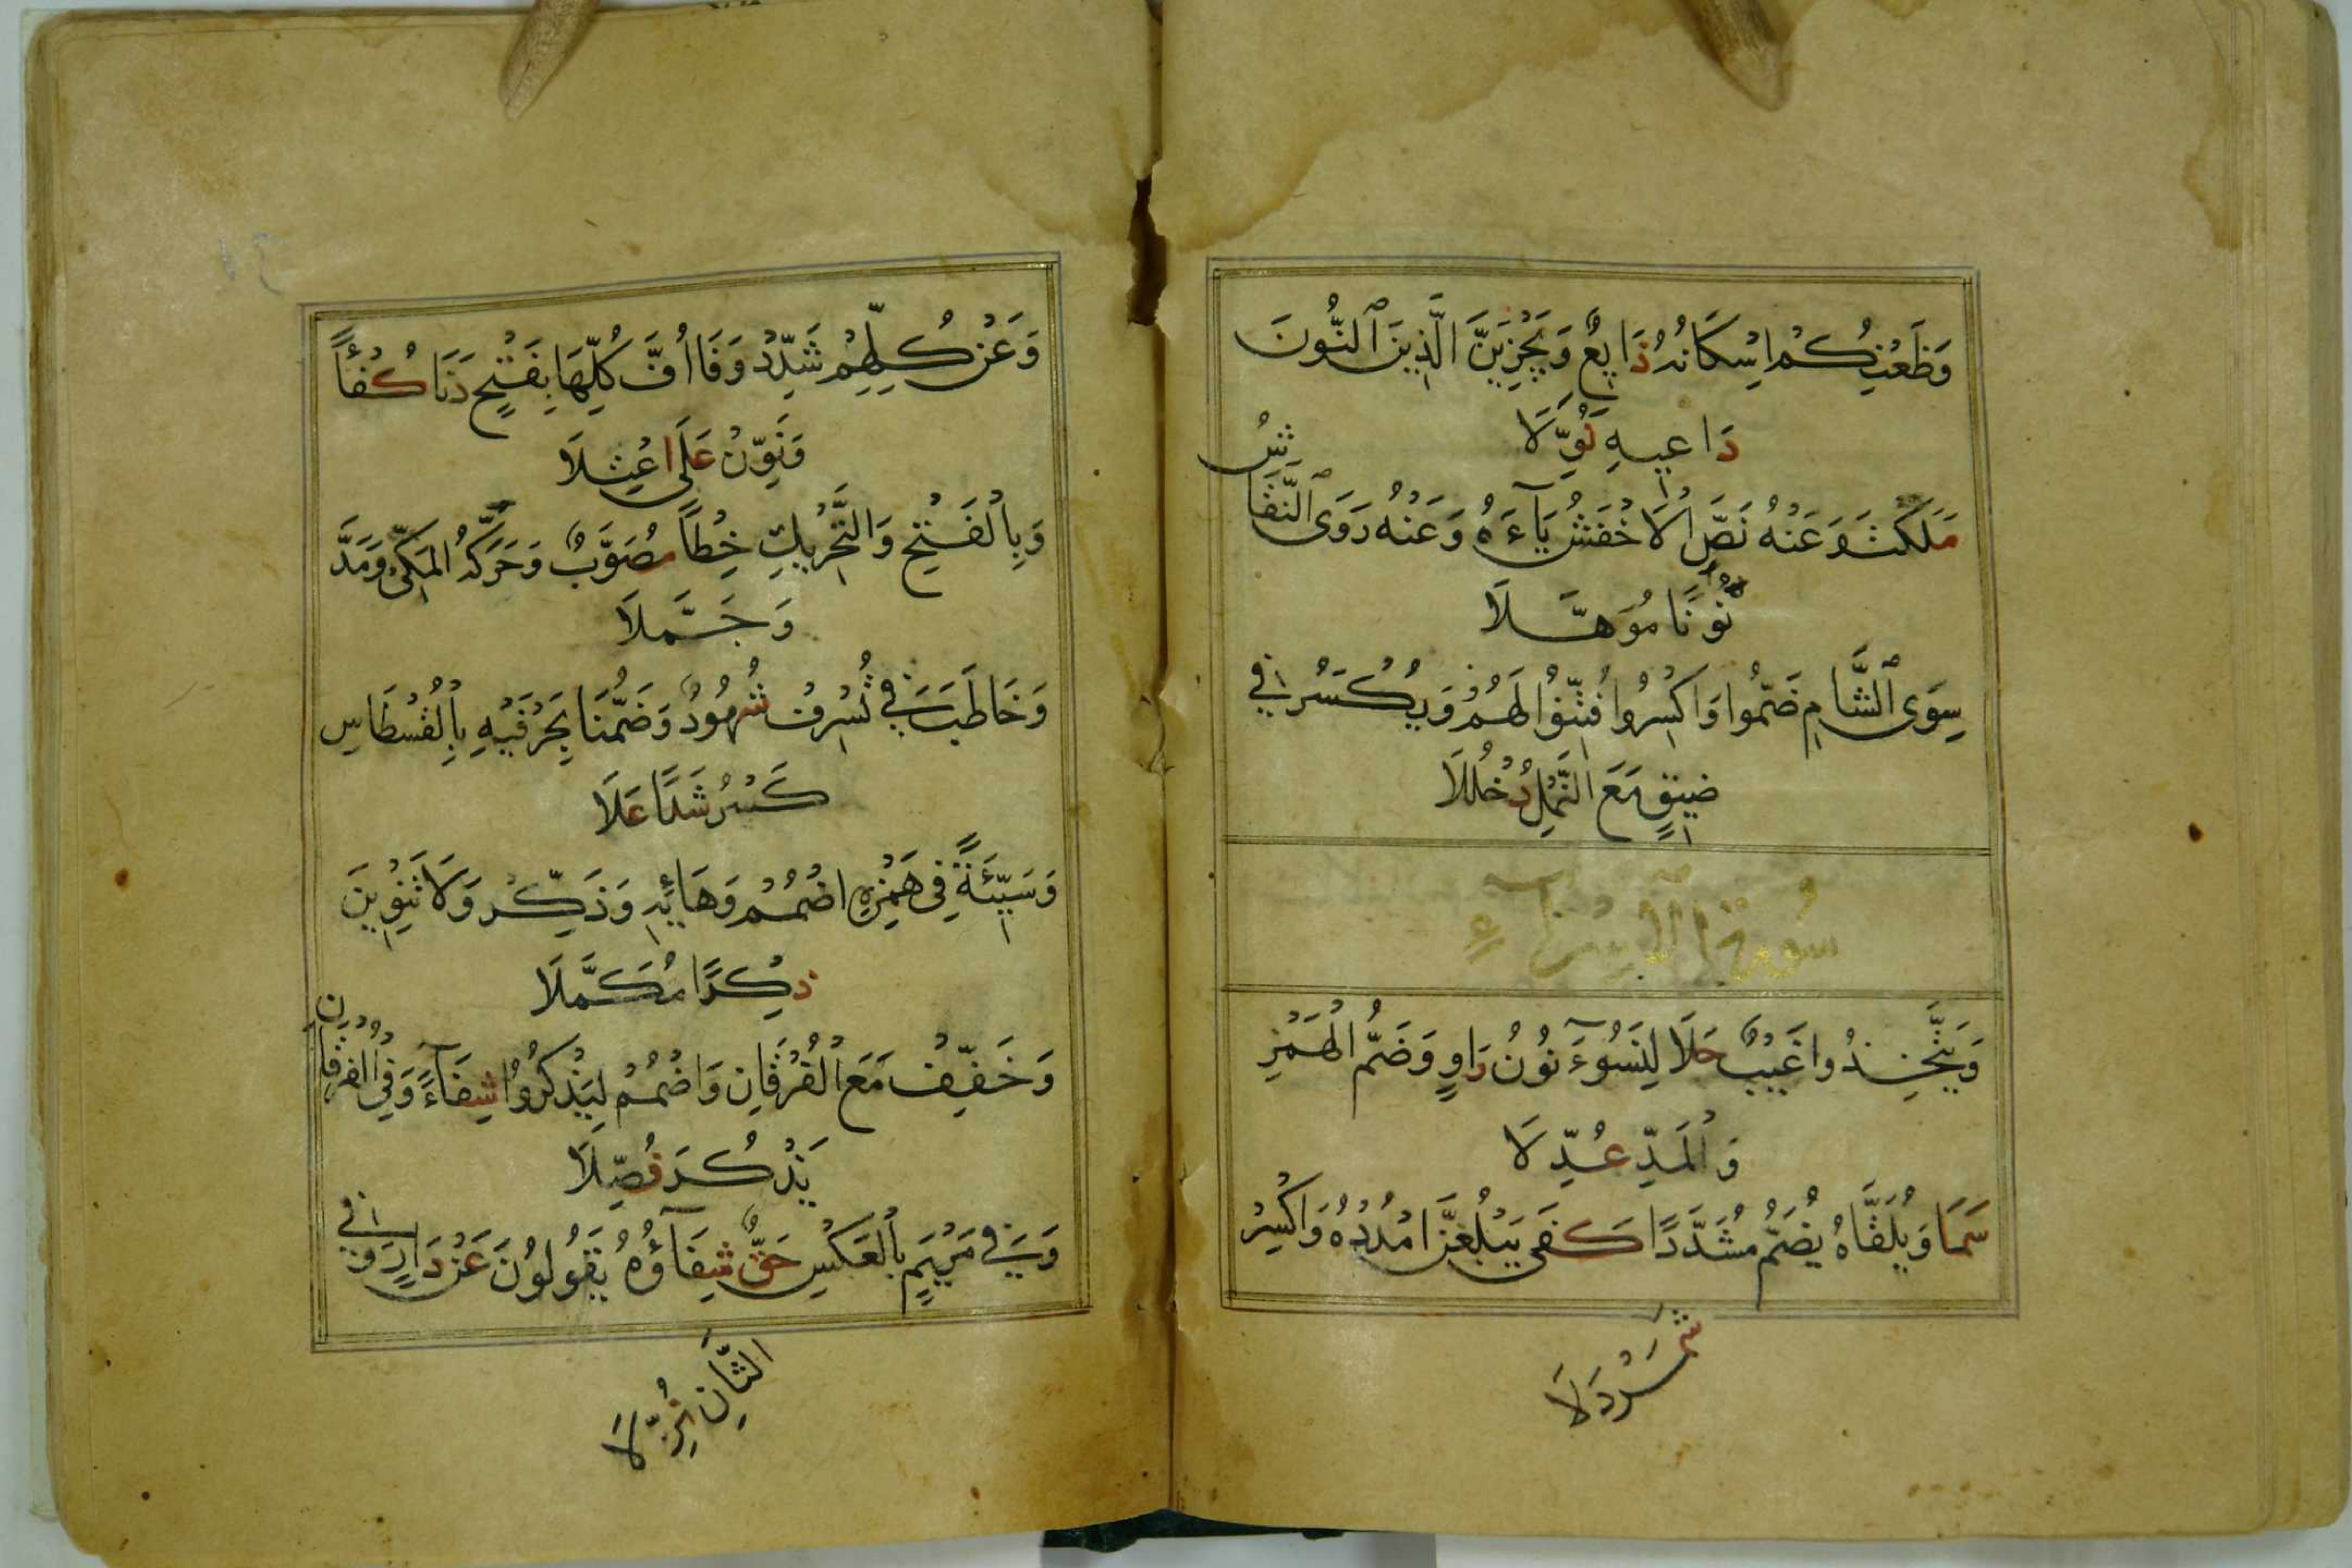 وَظَعْنِكُمْ اِسْكَانُهُ ذَايِعٌ وَيَجْزِيَنَّ الَّذِينَ ٱلنُّونَ
دَاعِيهِ نُوِّلَا
مَلَكْتُ وَعَنْهُ نَصَّ الْاَخْفَشُ يَآءَهُ وَعَنْهُ رَوَى ٱلنَّقَّاشُ
نُونًا مُوَهَّلَا
سِوَى ٱلشَّامِ ضَمُّوا وَاكْسِرُوا فُتِّنُوا لَهُمْ وَيُكْسَرُ فِي
ضَيْقٍ مَعَ النَّمْلِ دُخْلُلَا
سُورَةُ ٱلْاِسْرَآءِ
وَيَتَّخِذُوا غَيْبٌ حَلَا لِيَسُوٓءَ نُونُ رَاوٍ وَضَمُّ الْهَمْزِ
وَالْمَدِّ عُدِّلَا
سَمَا وَيُلَقَّاهُ يُضَمُّ مُشَدَّدًا كَفَى يَبْلُغَنَّ امْدُدْهُ وَاكْسِرْ
شَمَرْدَلَا
وَعَنْ كُلِّهِمْ شَدِّدْ وَفَا اُفَّ كُلِّهَا بِفَتْحٍ دَنَا كُفْئًا
وَنَوِّنْ عَلَى اعْتِلَا
وَبِالْفَتْحِ وَالتَّحْرِيكِ خِطْأً مُصَوَّبٌ وَحَرَّكَهُ المَكِّيْ وَمَدَّ
وَجَمَّلَا
وَخَاطَبَ فِي تُسْرِفْ شُهُودٌ وَضَمُّنَا بِحَرْفَيْهِ بِالْقُسْطَاسِ
كَسْرُ شَذًا عَلَا
وَسَيِّئَةً فِي هَمْزِهِ اضْمُمْ وَهَائِهِ وَذَكِّرْ وَلَا تَنْوِينَ
ذِكْرًا مُكَمَّلَا
وَخَفِّفْ مَعَ الْفُرْقَانِ وَاضْمُمْ لِيَذْكُرُوا شِفَآءً وَفِي الْفُرْقَانِ
يَذْكُرُ فُصِّلَا
وَفِي مَرْيَمٍ بِالْعَكْسِ حَقٌّ شِفَآؤُهُ يَقُولُونَ عَنْ دَارٍ وَفِي
الثَّانِ نُزِّلَا